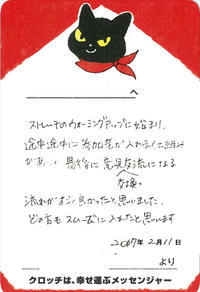 へ
ストレッチのウォーミングアップに始まり、
途中途中に参加者が入れる仕組み
があり、最後に意見交流になる
対象
流れがすごく良かったと思いました。
どの方もスムーズに入れたと思います
2007年2月11日
より
クロッチは、幸せ運ぶメッセンジャー